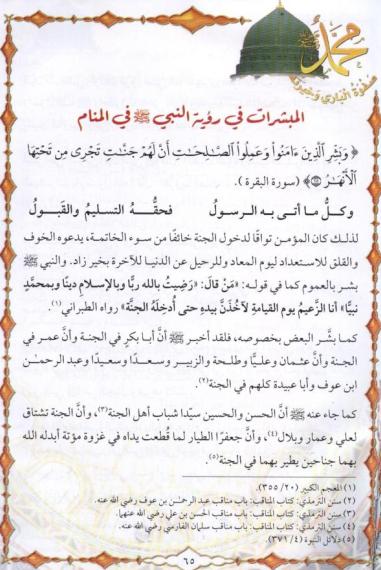 محمد ﷺ
صفوة الباري وخيرته
المبشرات في رؤية النبي ﷺ في المنام
﴿ وَبَشِّرِ ٱلَّذِينَ ءَامَنُوا۟ وَعَمِلُوا۟ ٱلصَّـٰلِحَـٰتِ أَنَّ لَهُمْ جَنَّـٰتٍ تَجْرِى مِن تَحْتِهَا
ٱلْأَنْهَـٰرُ ﴾ (سورة البقرة).
وكلُّ ما أتى به الرسولُ فحقُّهُ التسليمُ والقَبولُ
لذلك كان المؤمن تواقًا لدخول الجنة خائفًا من سوء الخاتمة، يدعوه الخوف
والقلق للاستعداد ليوم المعاد وللرحيل عن الدنيا للآخرة بخير زاد. والنبي ﷺ
بشر بالعموم كما في قوله: «مَنْ قالَ: «رَضِيتُ بالله ربًّا وبالإسلامِ دينًا وبمحمَّدٍ
نبيًّا» أنا الزَّعيمُ يومَ القيامةِ لآخُذَنَّ بيدِهِ حتى أُدخِلَهُ الجنَّةَ» رواه الطبراني(١).
كما بشَّر البعض بخصوصه، فلقد أخبر ﷺ أنَّ أبا بكرٍ في الجنة وأنَّ عمر في
الجنة وأنَّ عثمان وعليًّا وطلحة والزبير وسعدًا وسعيدًا وعبد الرحمـٰن
ابن عوف وأبا عبيدة كلهم في الجنة(٢).
كما جاء عنه ﷺ أنَّ الحسن والحسين سيّدا شباب أهل الجنة(٣)، وأنَّ الجنة تشتاق
لعلي وعمار وبلال(٤)، وأنَّ جعفرًا الطيار لما قُطعت يداه في غزوة مؤتة أبدله الله
بهما جناحين يطير بهما في الجنة(٥).
(١) المعجم الكبير (٢٠/ ٣٥٥).
(٢) سنن الترمذي: كتاب المناقب: باب مناقب عبد الرحمـٰن بن عوف رضي الله عنه.
(٣) سنن الترمذي: كتاب المناقب: باب مناقب الحسن بن علي رضي الله عنهما.
(٤) سنن الترمذي: كتاب المناقب: باب مناقب سلمان الفارسي رضي الله عنه.
(٥) دلائل النبوة (٤/ ٣٧١).
٦٥